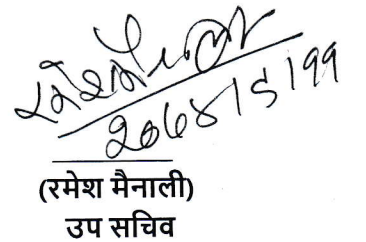 २०७४।५।११
(रमेश मैनाली)
उप सचिव